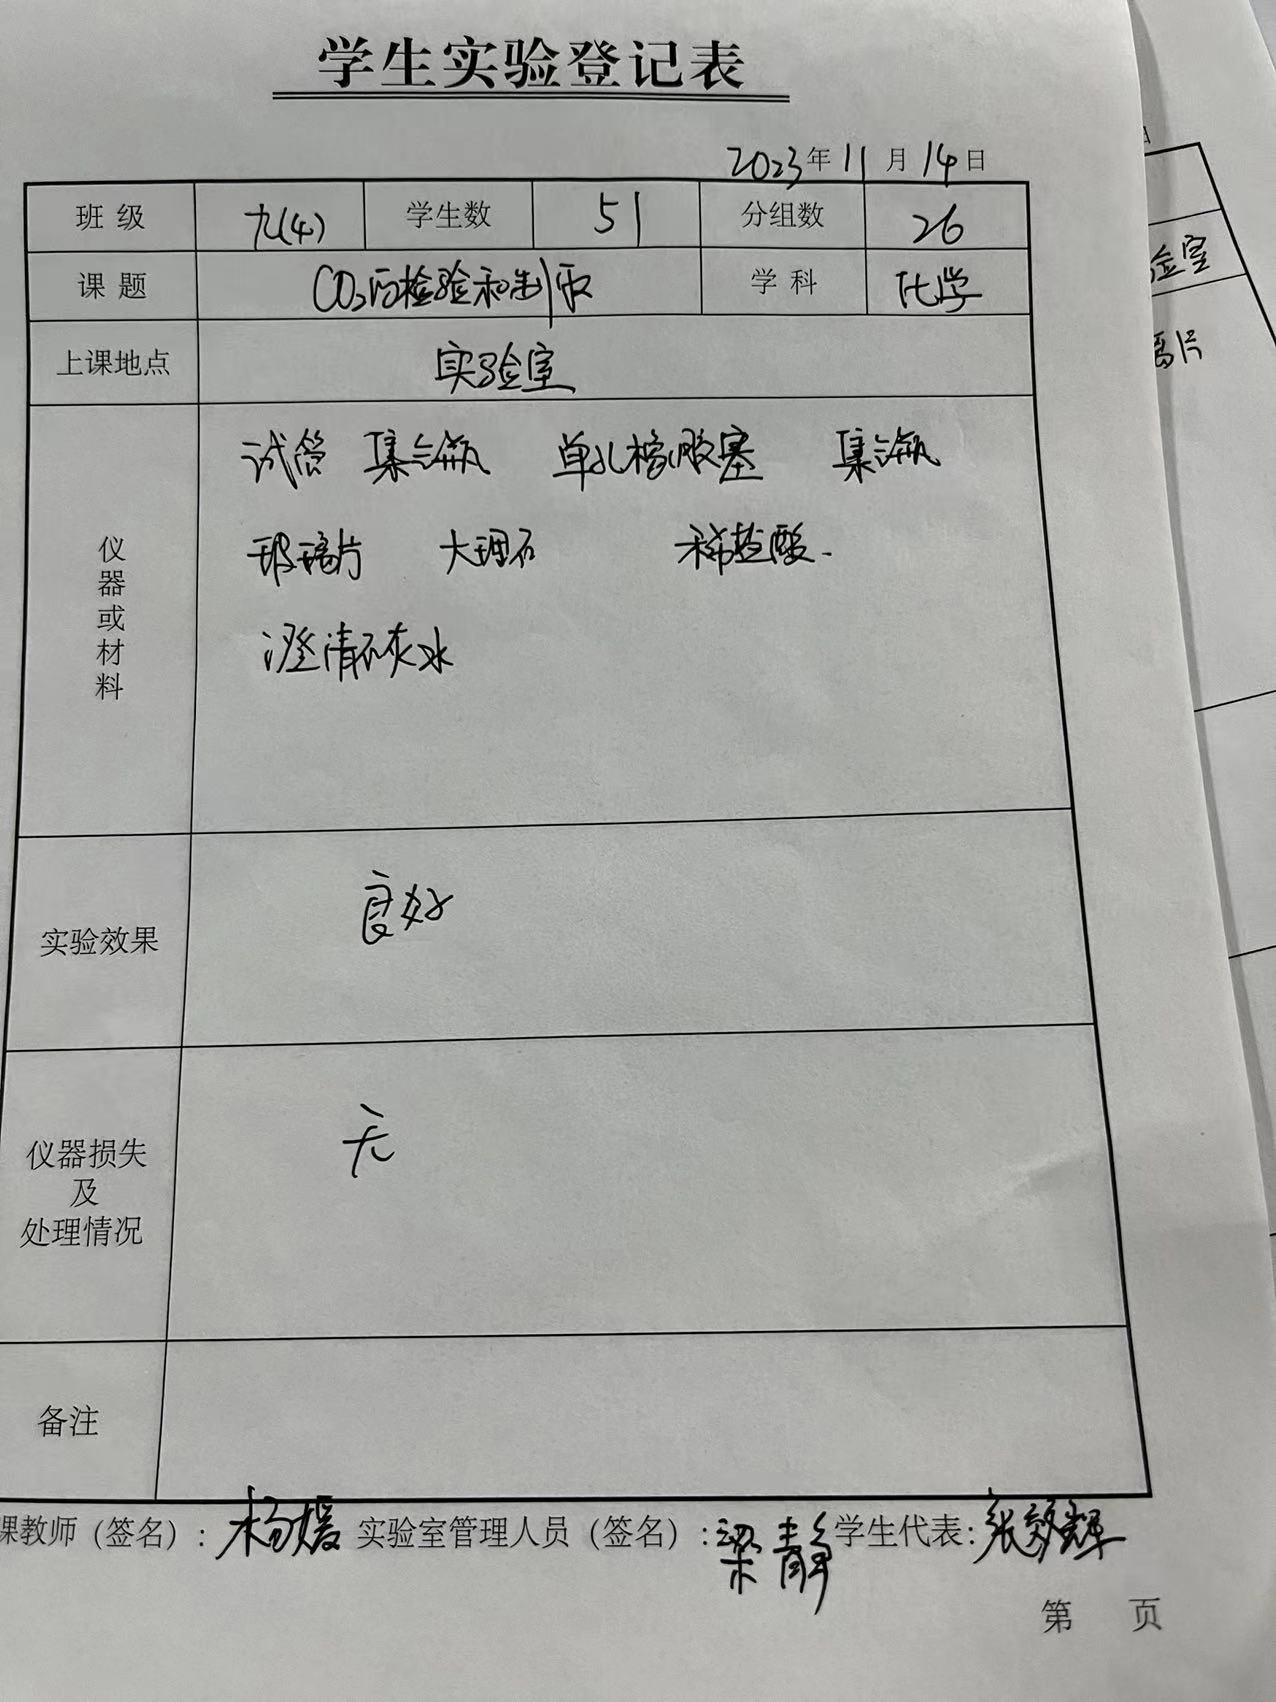 学生实验登记表
2023年11月14日
班级 九(4) 学生数 51 分组数 26
课题 CO₂的检验和制取 学科 化学
上课地点 实验室
仪器或材料
试管 集气瓶 单孔橡胶塞 集气瓶
玻璃片 大理石 稀盐酸.
澄清石灰水
实验效果 良好
仪器损失
及
处理情况
无
备注
课教师（签名）: 杨媛 实验室管理人员（签名）: 梁静 学生代表: 张
第 页
验室
璃片